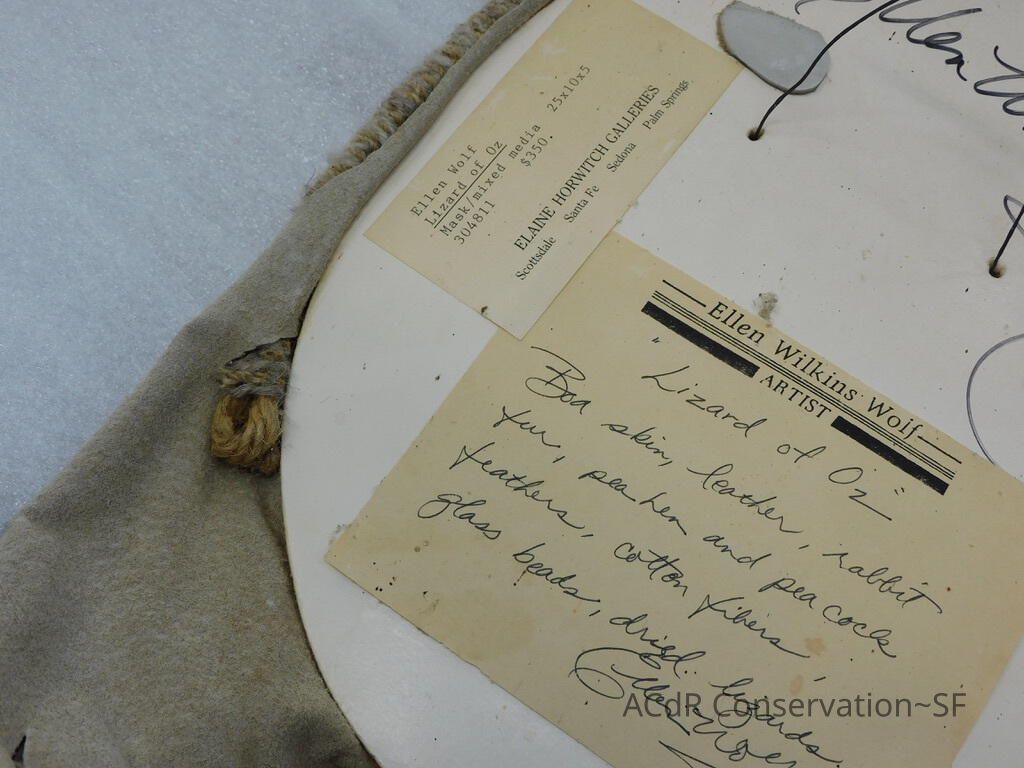 Ellen Wolf
Lizard of Oz
Mask/mixed media 25x10x5
304811 $350.
ELAINE HORWITCH GALLERIES
Scottsdale Santa Fe Sedona Palm Springs
Ellen
Ellen Wilkins Wolf
ARTIST
"Lizard of Oz"
Boa skin, leather, rabbit
fur, pea hen and peacock
feathers, cotton fibers,
glass beads, dried gourds.
Ellen Wolf
ACdR Conservation~SF